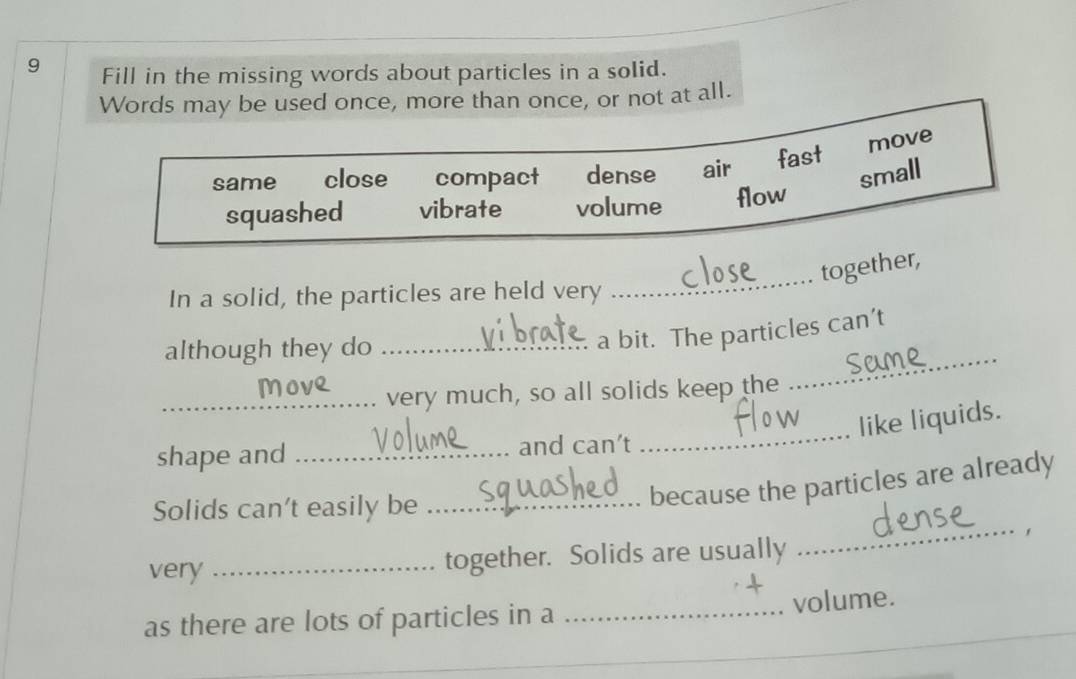 9
Fill in the missing words about particles in a solid.
Words may be used once, more than once, or not at all.
same close compact dense air fast move
squashed vibrate volume flow small
In a solid, the particles are held very close together,
although they do vibrate a bit. The particles can't
move very much, so all solids keep the same
shape and volume and can't flow like liquids.
Solids can't easily be squashed because the particles are already
very .................... together. Solids are usually dense ,
as there are lots of particles in a .................... volume.